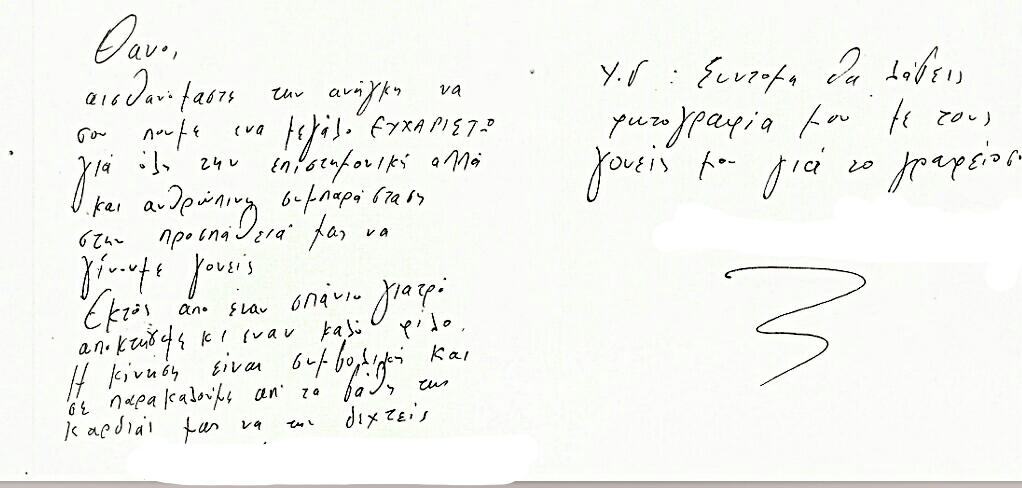 Θανο,
αισθανόμαστε την ανάγκη να
σου πούμε ενα μεγάλο ΕΥΧΑΡΙΣΤΩ
για όλη την επιστημονική αλλά
και ανθρώπινη συμπαράσταση
στην προσπάθειά μας να
γίνουμε γονείς
Εκτός απο έναν σπάνιο γιατρό
αποκτήσαμε κι εναν καλό φίλο.
Η κίνηση είναι συμβολική και
σε παρακαλούμε απ' τα βάθη της
καρδιάς μας να την δεχτείς
Υ.Γ : Σύντομα θα λάβεις
φωτογραφία μου με τους
γονείς μου για το γραφείο σ